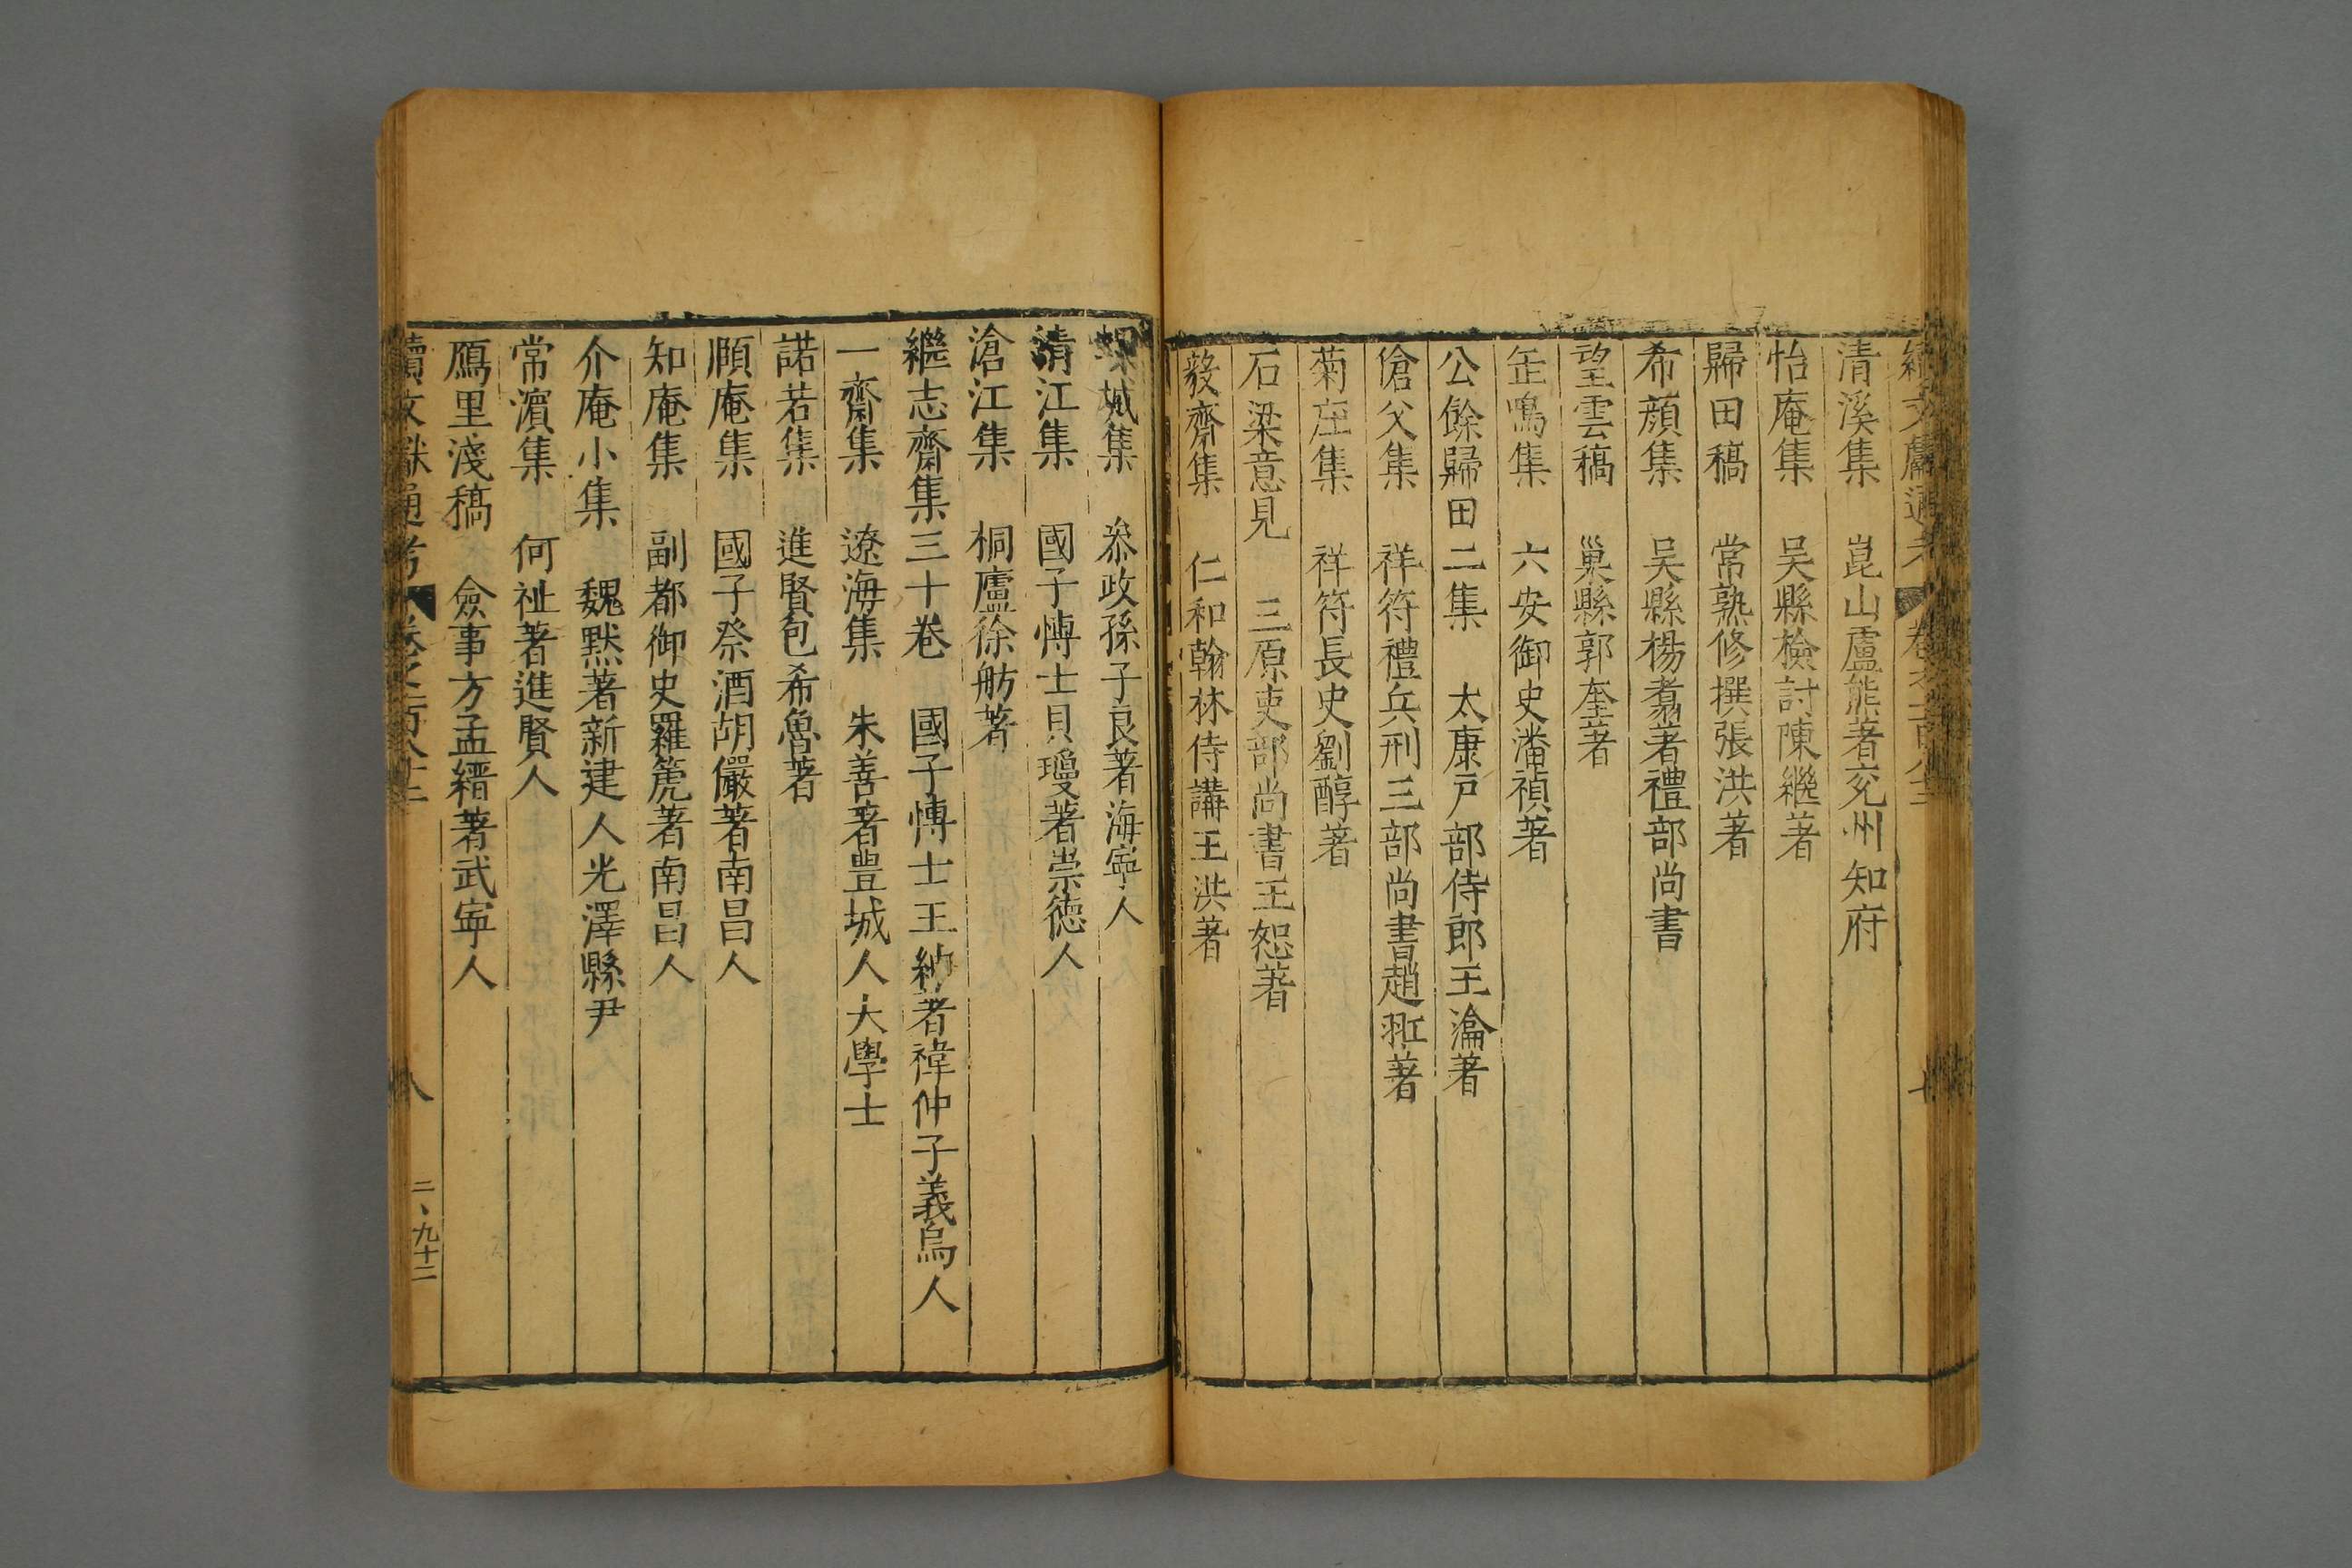 續文獻通考 卷之一百八十三 七
清溪集 崑山盧熊著兖州知府
怡庵集 吴縣檢討陳繼著
歸田稿 常熟修撰張洪著
希顔集 吴縣楊翥著禮部尚書
望雲稿 巢縣郭奎著
缶鳴集 六安御史潘禎著
公餘歸田二集 太康戸部侍郎王瀹著
傖父集 祥符禮兵刑三部尚書趙羾著
菊庄集 祥符長史劉醇著
石梁意見 三原吏部尚書王恕著
毅齋集 仁和翰林侍講王洪著
城集 叅政孫子良著海寧人
清江集 國子愽士貝瓊著崇德人
滄江集 桐廬徐舫著
繼志齋集三十卷 國子愽士王紳著禕仲子義烏人
一齋集 遼海集 朱善著豊城人大學士
諾若集 進賢包希魯著
頥庵集 國子祭酒胡儼著南昌人
知庵集 副都御史羅箎著南昌人
介庵小集 魏默著新建人光澤縣尹
常濵集 何祉著進賢人
鴈里淺稿 僉事方孟縉著武寧人
續文獻通考 卷之一百八十三 八
二、九十二